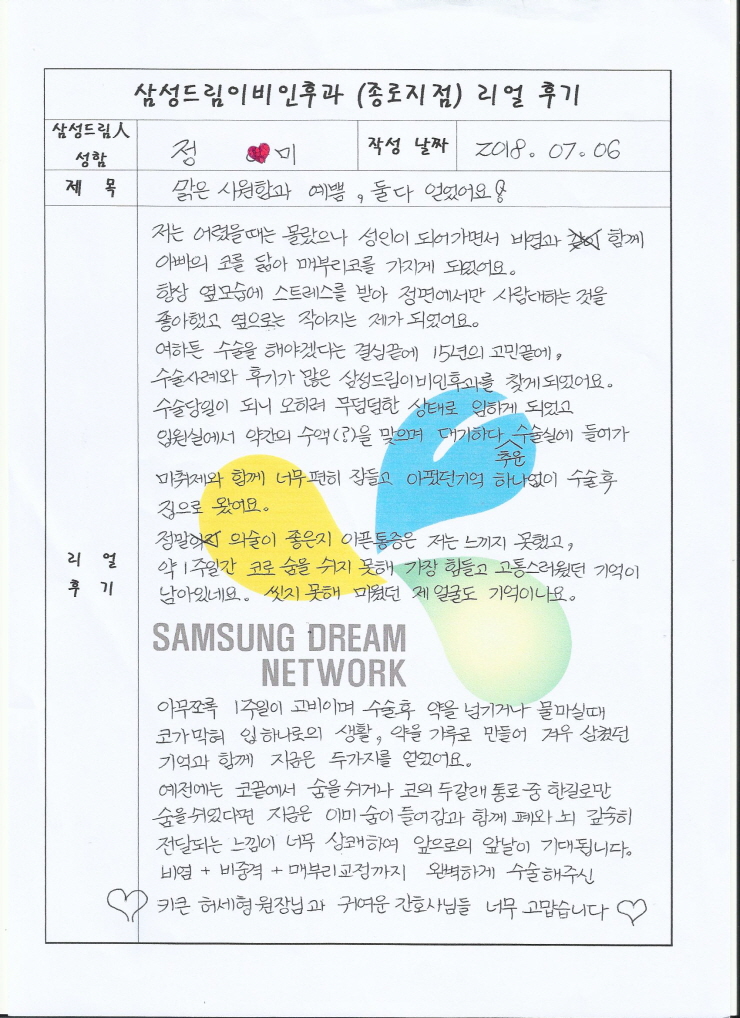 삼성드림이비인후과 (종로지점) 리얼 후기
삼성드림人
성함
정 미
작성 날짜
2018. 07. 06
제 목
맑은 시원함과 예쁨, 둘다 얻었어요!
저는 어렸을때는 몰랐으나 성인이 되어가면서 비염과 함께
아빠의 코를 닮아 매부리코를 가지게 되었어요.
항상 옆모습에 스트레스를 받아 정면에서만 사람대하는 것을
좋아했고 옆으로는 작아지는 제가 되었어요.
여하튼 수술을 해야겠다는 결심끝에 15년의 고민끝에,
수술사례와 후기가 많은 삼성드림이비인후과를 찾게되었어요.
수술당일이 되니 오히려 무덤덤한 상태로 임하게 되었고
입원실에서 약간의 수액(?)을 맞으며 대기하다 추운 수술실에 들어가
마취제와 함께 너무 편히 잠들고 아팠던기억 하나없이 수술후
집으로 왔어요.
정말 의술이 좋은지 아픈통증은 저는 느끼지 못했고,
약 1주일간 코로 숨을 쉬지 못해 가장 힘들고 고통스러웠던 기억이
남아있네요. 씻지 못해 미웠던 제 얼굴도 기억이나요.
리 얼
후 기
SAMSUNG DREAM
NETWORK
아무쪼록 1주일이 고비이며 수술후 약을 넘기거나 물마실때
코가 막혀 입 하나로의 생활, 약을 가루로 만들어 겨우 삼켰던
기억과 함께 지금은 두가지를 얻었어요.
예전에는 코끝에서 숨을 쉬거나 코의 두갈래 통로 중 한길로만
숨을쉬었다면 지금은 이미 숨이 들어감과 함께 폐와 뇌 깊숙히
전달되는 느낌이 너무 상쾌하여 앞으로의 앞날이 기대됩니다.
비염 + 비중격 + 매부리교정까지 완벽하게 수술해주신
키큰 허세형 원장님과 귀여운 간호사님들 너무 고맙습니다